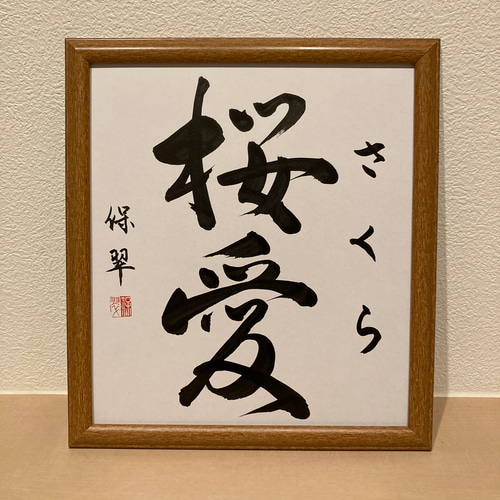 さくら
桜愛
保翠